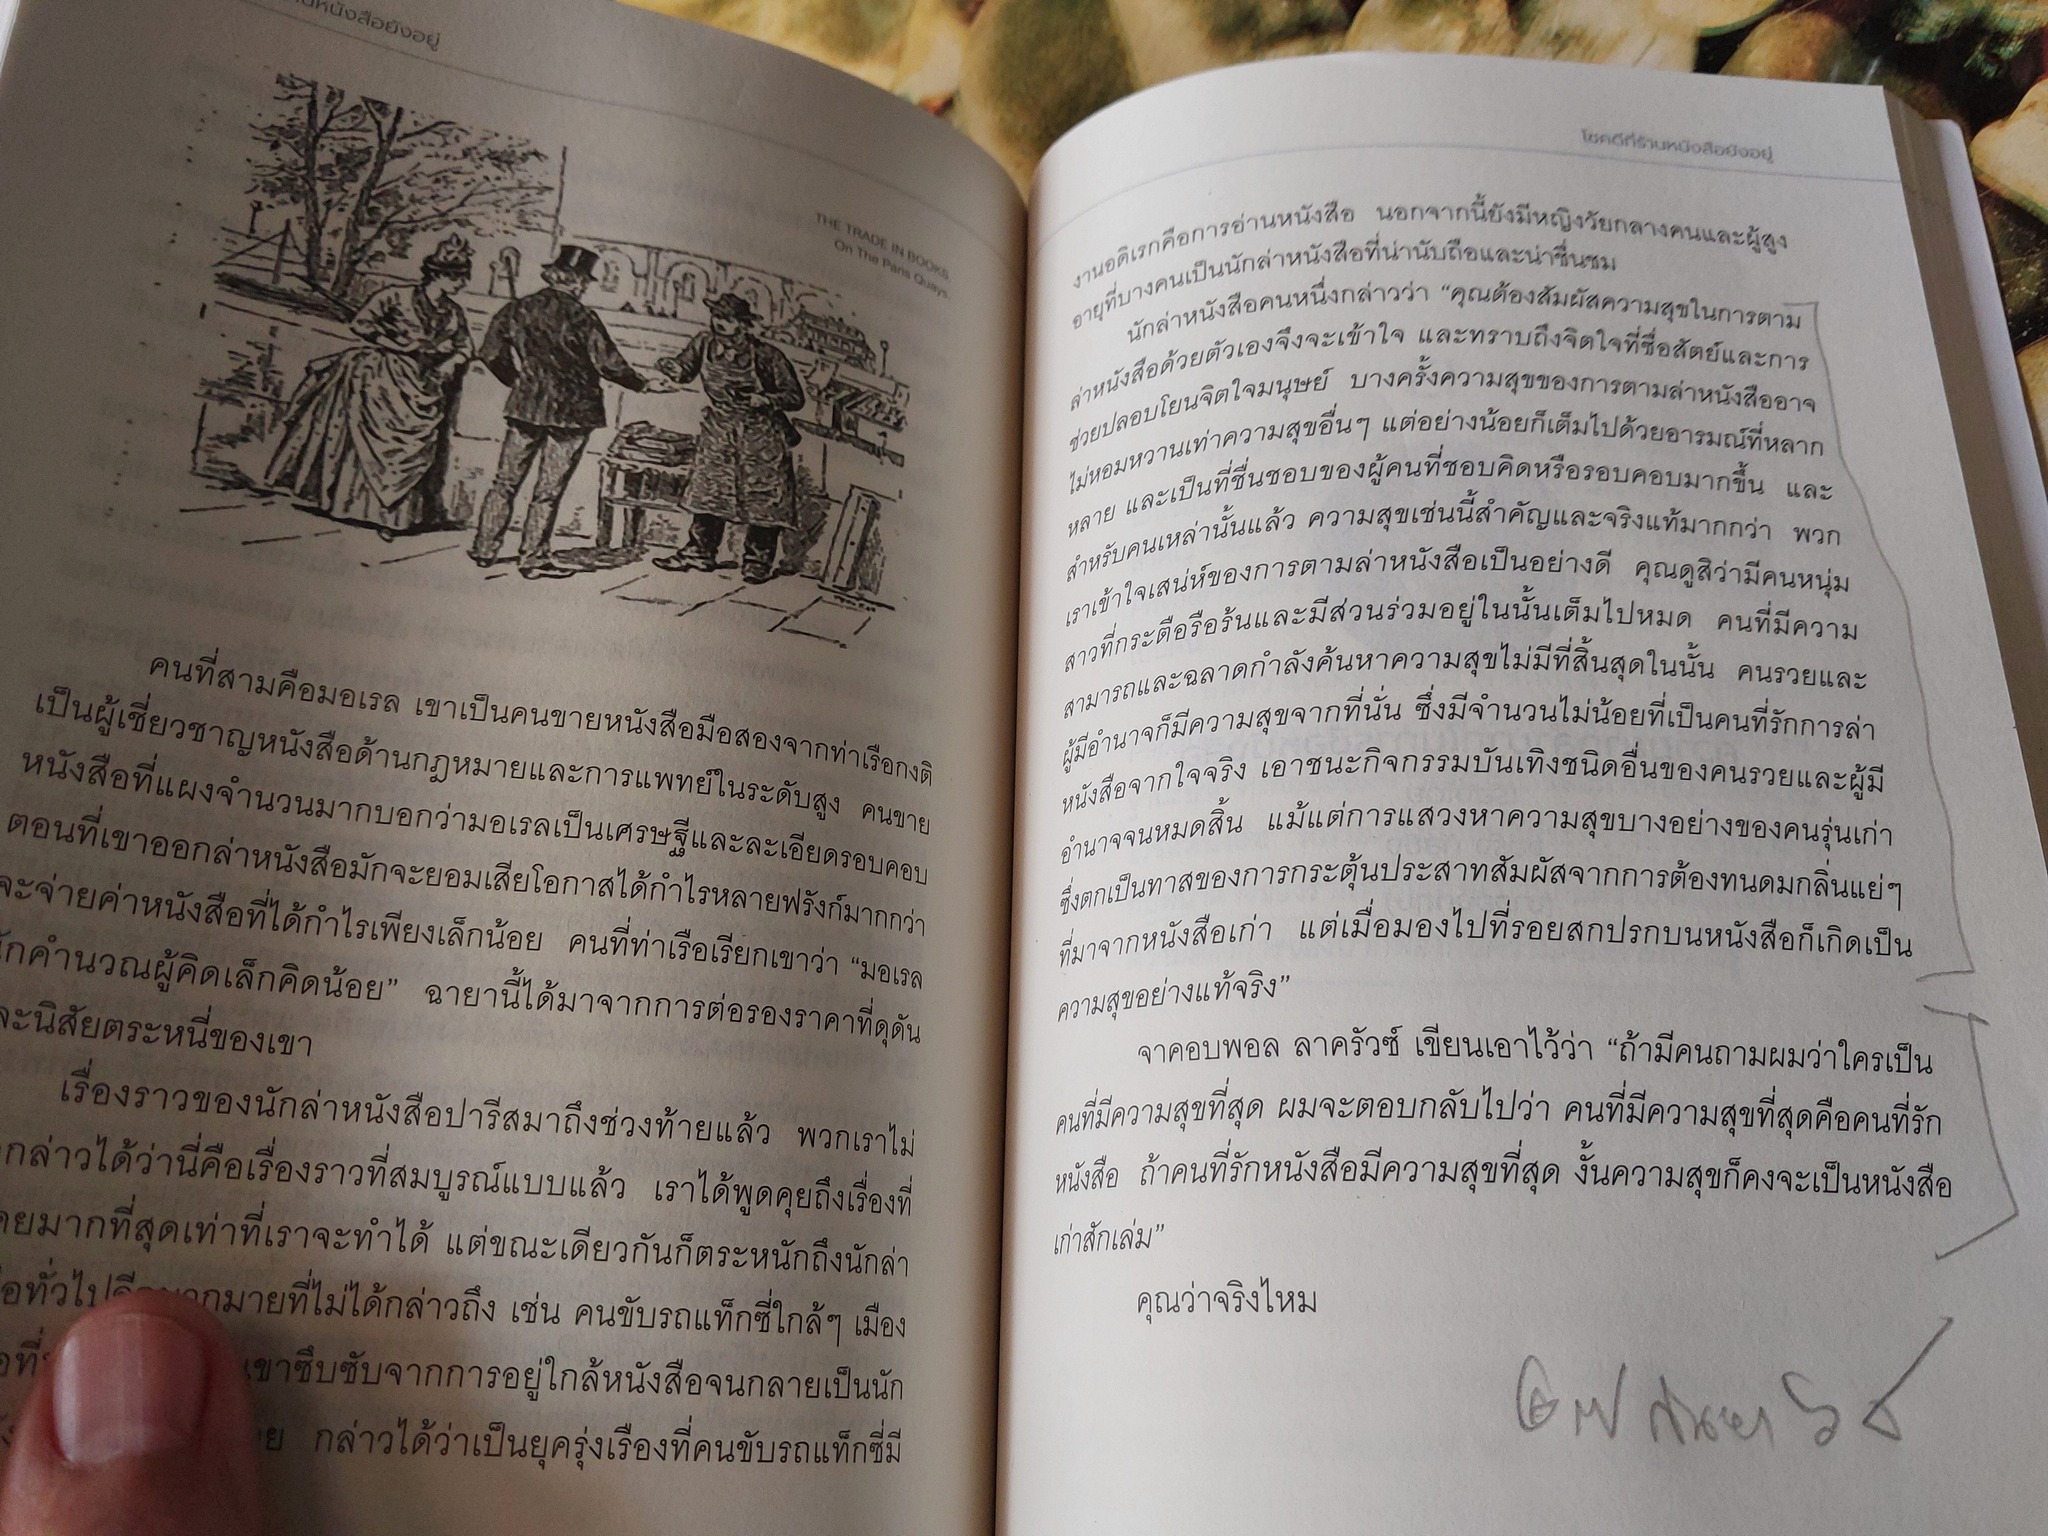 านหนังสือยังอยู่
THE TRADE IN BOOKS
On The Paris Quays
คนที่สามคือมอเรล เขาเป็นคนขายหนังสือมือสองจากท่าเรือกงติ
เป็นผู้เชี่ยวชาญหนังสือด้านกฎหมายและการแพทย์ในระดับสูง คนขาย
หนังสือที่แผงจำนวนมากบอกว่ามอเรลเป็นเศรษฐีและละเอียดรอบคอบ
ตอนที่เขาออกล่าหนังสือมักจะยอมเสียโอกาสได้กำไรหลายฟรังก์มากกว่า
จะจ่ายค่าหนังสือที่ได้กำไรเพียงเล็กน้อย คนที่ท่าเรือเรียกเขาว่า “มอเรล
นักคำนวณผู้คิดเล็กคิดน้อย” ฉายานี้ได้มาจากการต่อรองราคาที่ดุดัน
และนิสัยตระหนี่ของเขา
เรื่องราวของนักล่าหนังสือปารีสมาถึงช่วงท้ายแล้ว พวกเราไม่
กล่าวได้ว่านี่คือเรื่องราวที่สมบูรณ์แบบแล้ว เราได้พูดคุยถึงเรื่องที่
มากที่สุดเท่าที่เราจะทำได้ แต่ขณะเดียวกันก็ตระหนักถึงนักล่า
ทั่วไปอีกมากมายที่ไม่ได้กล่าวถึง เช่น คนขับรถแท็กซี่ใกล้ๆ เมือง
เขาซึบซับจากการอยู่ใกล้หนังสือจนกลายเป็นนัก
กล่าวได้ว่าเป็นยุครุ่งเรืองที่คนขับรถแท็กซี่มี
โชคดีที่ร้านหนังสือยังอยู่
งานอดิเรกคือการอ่านหนังสือ นอกจากนี้ยังมีหญิงวัยกลางคนและผู้สูง
อายุที่บางคนเป็นนักล่าหนังสือที่น่านับถือและน่าชื่นชม
นักล่าหนังสือคนหนึ่งกล่าวว่า “คุณต้องสัมผัสความสุขในการตาม
ล่าหนังสือด้วยตัวเองจึงจะเข้าใจ และทราบถึงจิตใจที่ซื่อสัตย์และการ
ช่วยปลอบโยนจิตใจมนุษย์ บางครั้งความสุขของการตามล่าหนังสืออาจ
ไม่หอมหวานเท่าความสุขอื่นๆ แต่อย่างน้อยก็เต็มไปด้วยอารมณ์ที่หลาก
หลาย และเป็นที่ชื่นชอบของผู้คนที่ชอบคิดหรือรอบคอบมากขึ้น และ
สำหรับคนเหล่านั้นแล้ว ความสุขเช่นนี้สำคัญและจริงแท้มากกว่า พวก
เราเข้าใจเสน่ห์ของการตามล่าหนังสือเป็นอย่างดี คุณดูสิว่ามีคนหนุ่ม
สาวที่กระตือรือร้นและมีส่วนร่วมอยู่ในนั้นเต็มไปหมด คนที่มีความ
สามารถและฉลาดกำลังค้นหาความสุขไม่มีที่สิ้นสุดในนั้น คนรวยและ
ผู้มีอำนาจก็มีความสุขจากที่นั่น ซึ่งมีจำนวนไม่น้อยที่เป็นคนที่รักการล่า
หนังสือจากใจจริง เอาชนะกิจกรรมบันเทิงชนิดอื่นของคนรวยและผู้มี
อำนาจจนหมดสิ้น แม้แต่การแสวงหาความสุขบางอย่างของคนรุ่นเก่า
ซึ่งตกเป็นทาสของการกระตุ้นประสาทสัมผัสจากการต้องทนดมกลิ่นแย่ๆ
ที่มาจากหนังสือเก่า แต่เมื่อมองไปที่รอยสกปรกบนหนังสือก็เกิดเป็น
ความสุขอย่างแท้จริง”
จาคอบพอล ลาครัวซ์ เขียนเอาไว้ว่า “ถ้ามีคนถามผมว่าใครเป็น
คนที่มีความสุขที่สุด ผมจะตอบกลับไปว่า คนที่มีความสุขที่สุดคือคนที่รัก
หนังสือ ถ้าคนที่รักหนังสือมีความสุขที่สุด งั้นความสุขก็คงจะเป็นหนังสือ
เก่าสักเล่ม”
คุณว่าจริงไหม